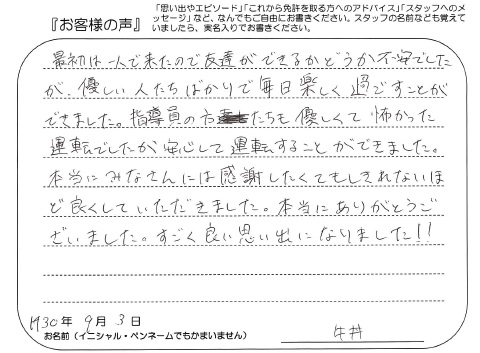 『お客様の声』
「思い出やエピソード」「これから免許を取る方へのアドバイス」「スタッフへのメ
ッセージ」など、なんでもご自由にお書きください。スタッフの名前なども覚えて
いましたら、実名入りでお書きください。
最初は一人で来たので友達ができるかどうか不安でした
が、優しい人たちばかりで毎日楽しく過ごすことが
できました。指導員の方たちも優しくて怖かった
運転でしたが安心して運転することができました。
本当にみなさんには感謝したくてもしきれないほ
ど良くしていただきました。本当にありがとうご
ざいました。すごく良い思い出になりました!!
H30年 9月 3日
お名前(イニシャル・ペンネームでもかまいません)
牛丼